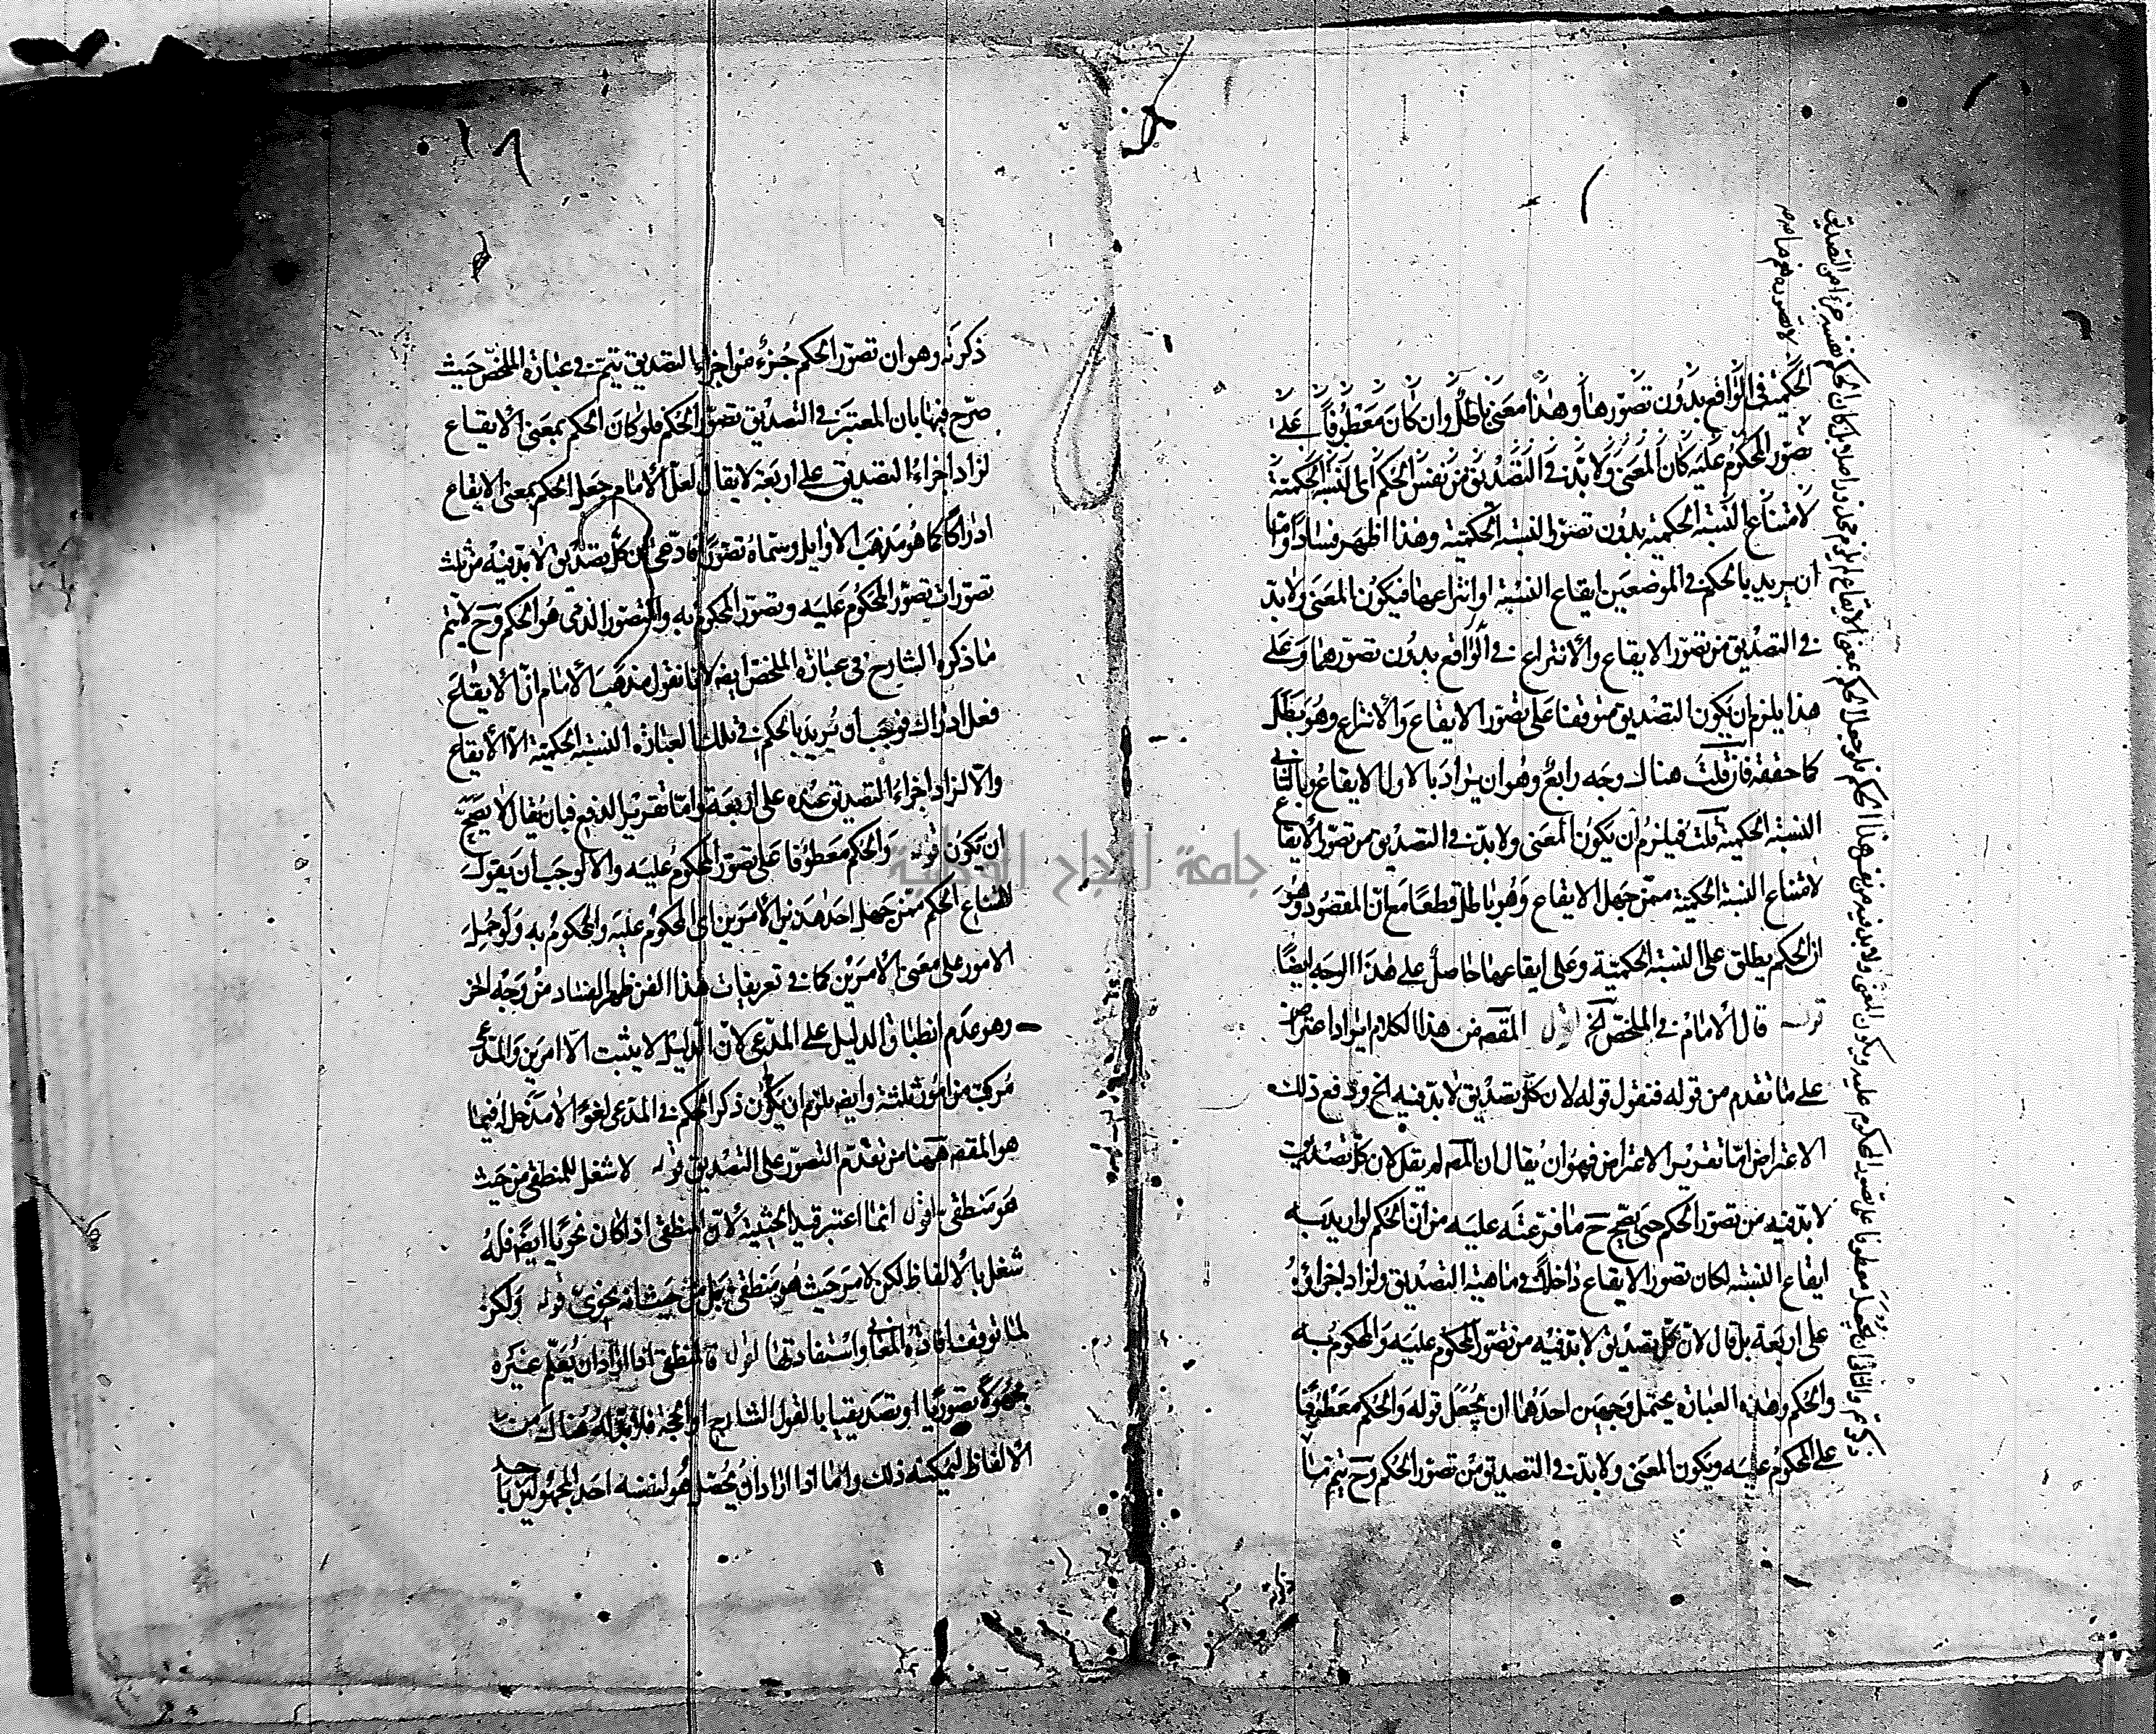 الحكمية في الواقع بدون تصورها وهذا معنى باطل وان كان معطوفا على
تصور المحكوم عليه كان المعنى ولا بد في التصديق من نفس الحكم اى النسبة الحكمية
لامتناع النسبة الحكمية بدون تصور النسبة الحكمية وهذا اظهر فسادا واما
ان يريد بالحكم في الموضعين ايقاع النسبة او انتزاعها فيكون المعنى ولا بد
في التصديق من تصور الايقاع والانتزاع في الواقع بدون تصورهما وعلى
هذا يلزم ان يكون التصديق متوقفا على تصور الايقاع والانتزاع وهو بطل
كما حققه فان قلت هناك وجه رابع وهو ان يراد بالاول الايقاع وبالثاني
النسبة الحكمية قلت فيلزم ان يكون المعنى ولا بد في التصديق من تصور الايقاع
لامتناع النسبة الحكمية ممن جهل الايقاع وهو باطل قطعا مع ان المقصود وهو
ان الحكم يطلق على النسبة الحكمية وعلى ايقاعها حاصل على هذا الوجه ايضا
قوله قال الامام في الملخص الخ اقول المقصد من هذا الكلام ايراد اعتراض
على ما تقدم من قوله فنقول قوله لان كل تصديق لا بد فيه الخ ودفع ذلك
الاعتراض اما تقرير الاعتراض فهو ان يقال ان المصـ لم يقل لان كل تصديق
لا بد فيه من تصور الحكم حتى يصح ح ما فرعته عليه من ان الحكم لو اريد به
ايقاع النسبة لكان تصور الايقاع داخلا في ماهية التصديق ولزاد اجزائه
على اربعة بل قال لان كل تصديق لا بد فيه من تصور المحكوم عليه والمحكوم به
والحكم وهذه العبارة يحتمل وجهين احدهما ان يجعل قوله والحكم معطوفا
على المحكوم عليه ويكون المعنى ولا بد في التصديق من تصور الحكم وح يتم ما
ذكرتم والثاني ان يجعل معطوفا على تصور المحكوم عليه ويكون المعنى ولا بد فيه من نفس هذا الحكم فلو جعل الحكم بمعنى الايقاع لم يلزم محذور اصلا بل كان الحكم نفسه جزءا من التصديق
لا تصوره
ذكرته وهو ان تصور الحكم جزء من اجزاء التصديق يتم في عبارة الملخص حيث
صرح فيها بان المعتبر في التصديق تصور الحكم فلو كان الحكم بمعنى الايقاع
لزاد اجزاء التصديق على اربعة لا يقال لعل الامام جعل الحكم بمعنى الايقاع
ادراكا كما هو مذهب الاوايل وسماه تصورا فادعى ان كل تصديق لا بد فيه من ثلث
تصورات تصور المحكوم عليه وتصور المحكوم به والتصور الذى هو الحكم وح لا يتم
ما ذكره الشارح في عبارة الملخص ايضا لانا نقول مذهب الامام ان الايقاع
فعل لا ادراك فوجب ان يريد بالحكم في تلك العبارة النسبة الحكمية لا الايقاع
والا لزاد اجزاء التصديق عنده على اربعة واما تقرير الدفع فبان يقال لا يصح
ان يكون قوله والحكم معطوفا على تصور المحكوم عليه والا لوجب ان يقول
لامتناع الحكم ممن جهل احد هذين الامرين اى المحكوم عليه والمحكوم به ولو حمل
الامور على معنى الامرين كما في تعريفات هذا الفن ظهر الفساد من وجه اخر
وهو عدم انطباق الدليل على المدعى لان الدليل لا يثبت الا امرين والمدعى
مركب من امور ثلثة وايضا يلزم ان يكون ذكر الحكم في المدعى لغوا لا مدخل له فيما
هو المقصد ههنا من تقدم التصور على التصديق قوله لا شغل للمنطقى من حيث
هو منطقى اقول انما اعتبر قيد الحيثية لان المنطقى اذا كان نحويا ايضا فله
شغل بالالفاظ لكن لا من حيث هو منطقى بل من حيث انه نحوى قوله ولكن
لما توقف افادة المعاني واستفادتها اقول فالمنطقى اذا اراد ان يعلم غيره
مجهولا تصوريا او تصديقيا بالقول الشارح او الحجة فلا بد له هناك من
الالفاظ ليمكنه ذلك واما اذا اراد ان يحصل هو لنفسه احد المجهولين با
جامعة النجاح الوطنية